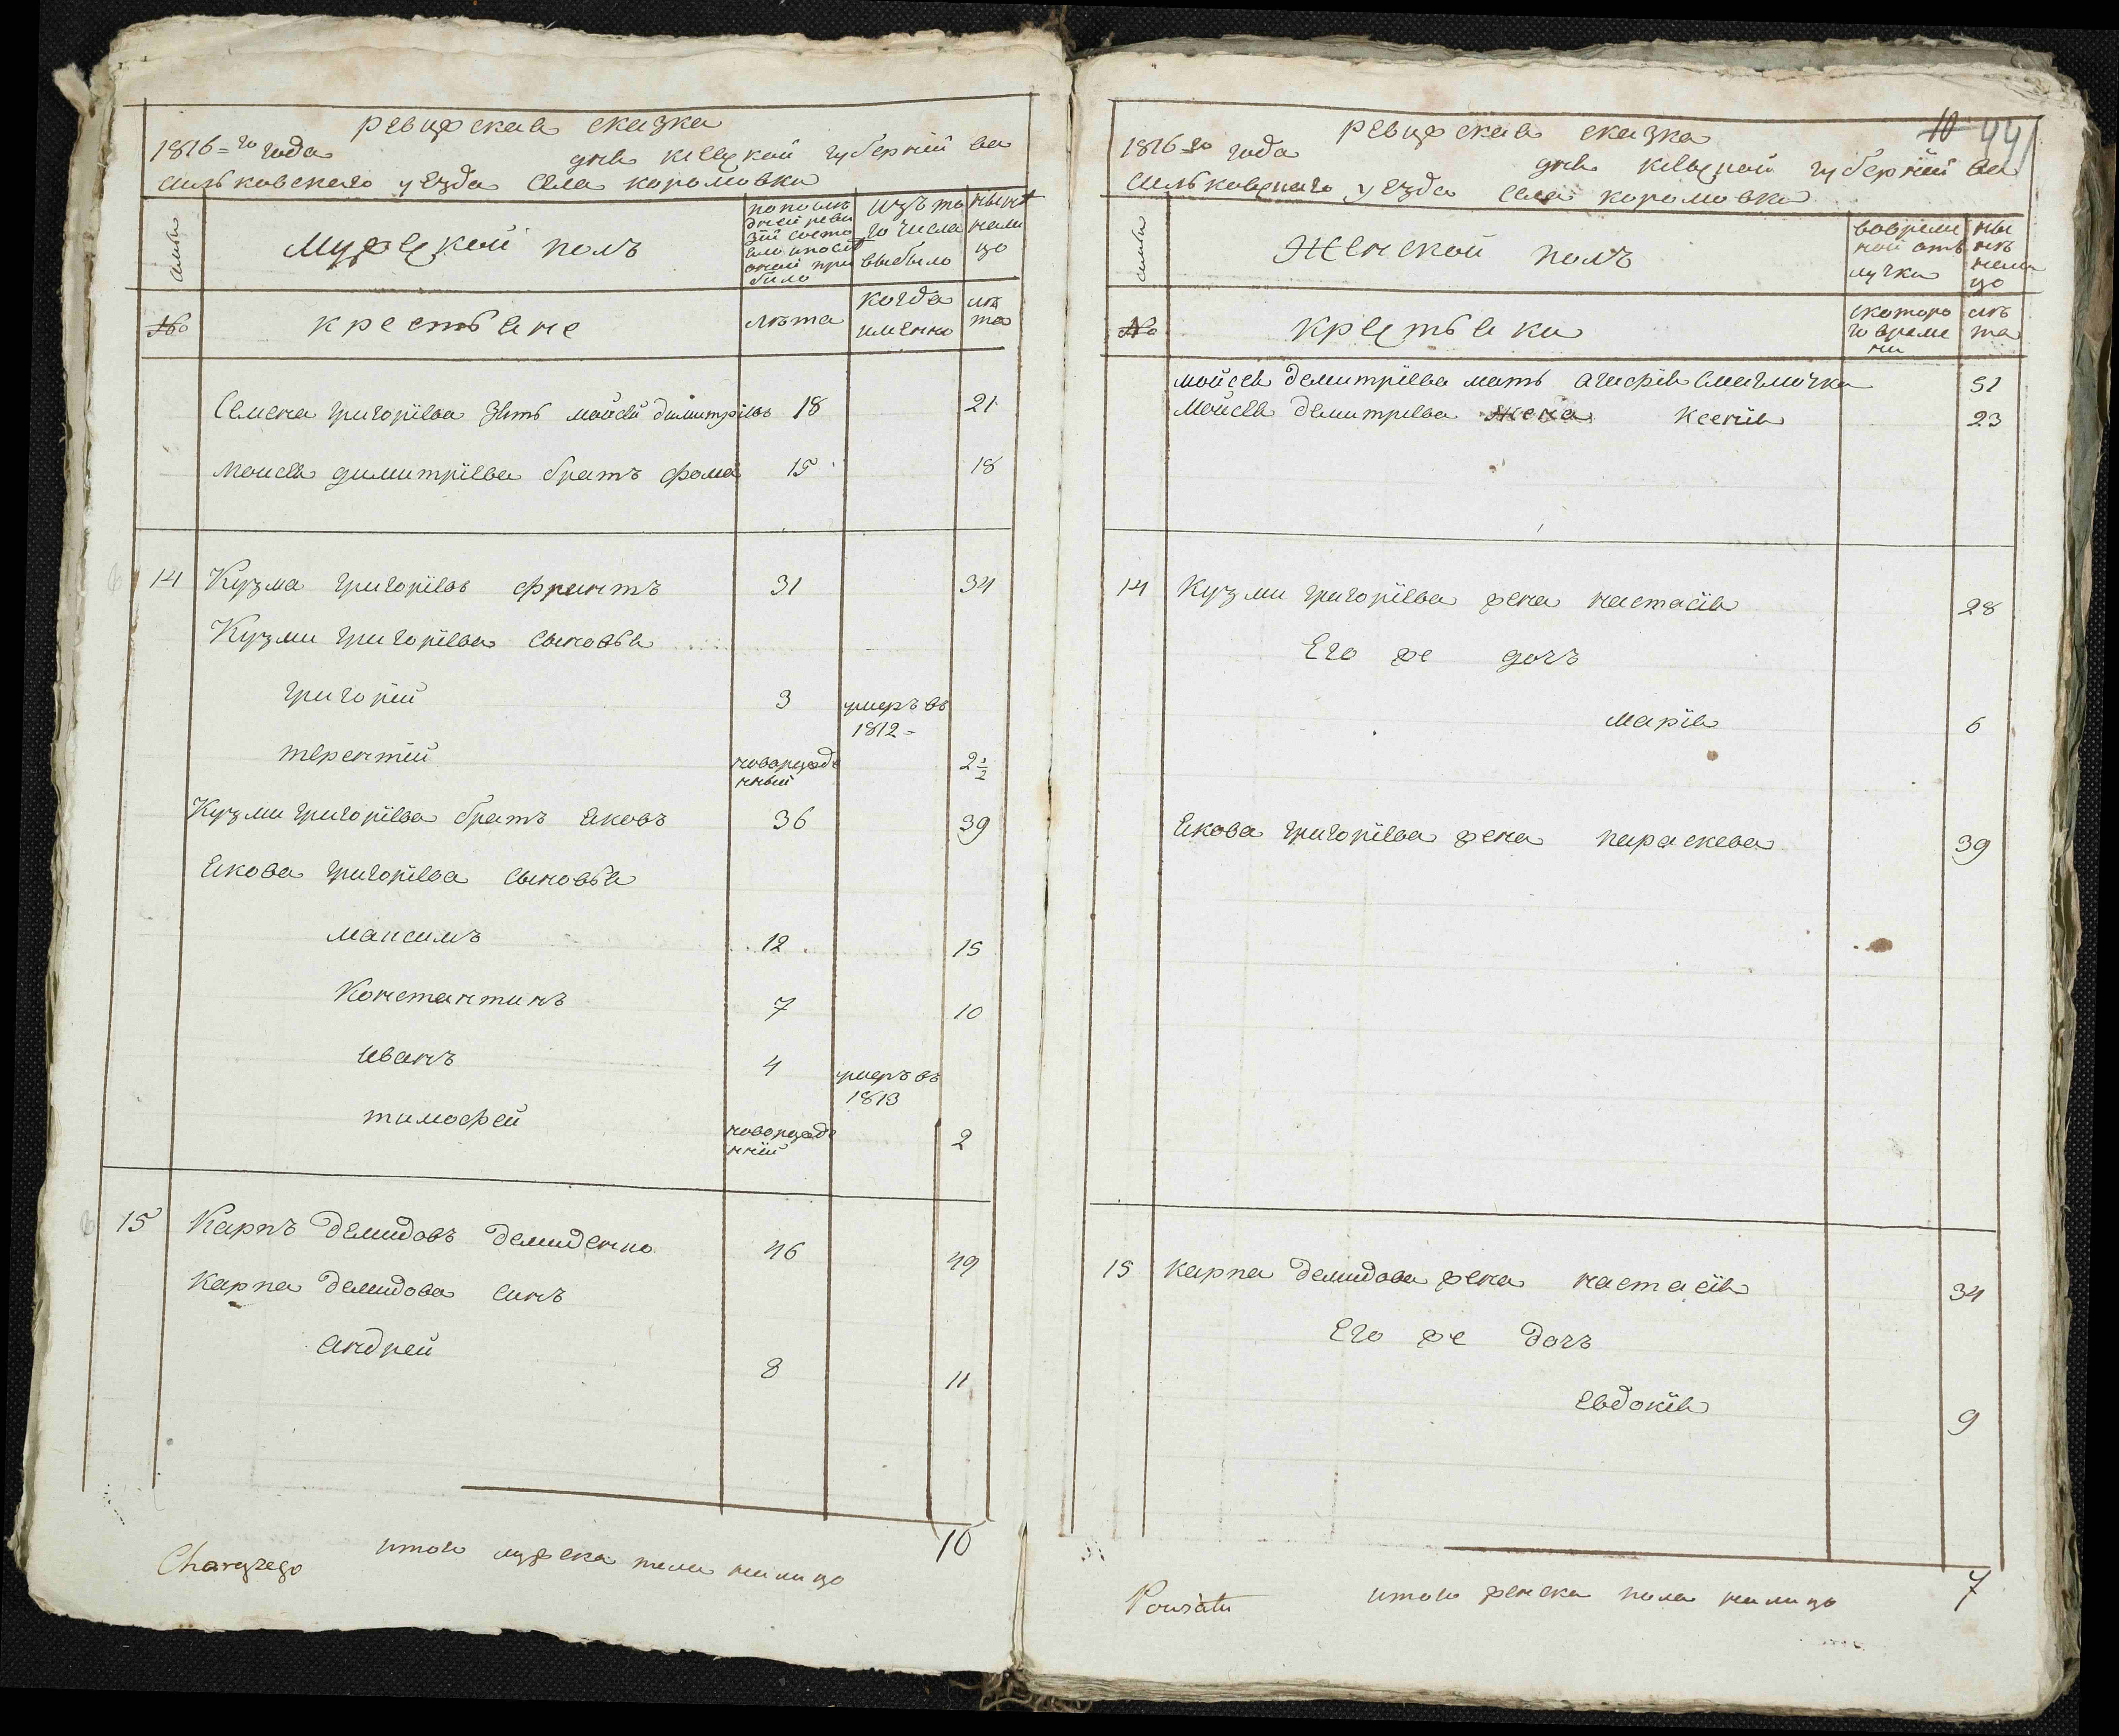 ревижская сказка
1816=го года дня киевской губернии ва
силковского уезда села королювки
семьи
Мужеской полъ
по послѣ
дней реви
зіи состо
яло и посл
оной при
было
изъ то
го числа
выбыло
нынѣ
нали
цо
№
крестьяне
лѣта
когда
именно
лѣ
та
Семена григоріева зять мойсей димитріевъ 18 21
Мойсея димитріева братъ фома 15 18
14 Кузма григоріевъ 31 34
Кузми григоріева сыновья
григорій 3 умеръ въ
1812=
терентій новорожде
нный 2½
Кузми григоріева братъ яковъ 36 39
Якова григоріева сыновья
максимъ 12 15
Константинъ 7 10
иванъ 4 умеръ въ
1813
тимофей новорожде
нній 2
15 Карпъ демидовъ демиденко 46 49
Карпа демидова синъ
андрей 8 11
итого мужеска пола налицо 10
ревижская сказка
10 44
1816го года дня киевской губерніи ва
силковского уезда села королювки
семьи
Женской полъ
вовреме
ной отъ
лучки
ны
нѣ
нали
цо
№
крестьянки
с которо
го време
ни
лѣ
та
мойсея демитріева мать агафія 51
Мойсея демитріева жена ксенія 23
14 Кузми григоріева жена настасія 28
Его же дочъ
марія 6
Якова григоріева жена параскева 39
15 карпа демидова жена настасія 34
Его же дочъ
евдокія 9
Powiatu итого женска пола налицо 7